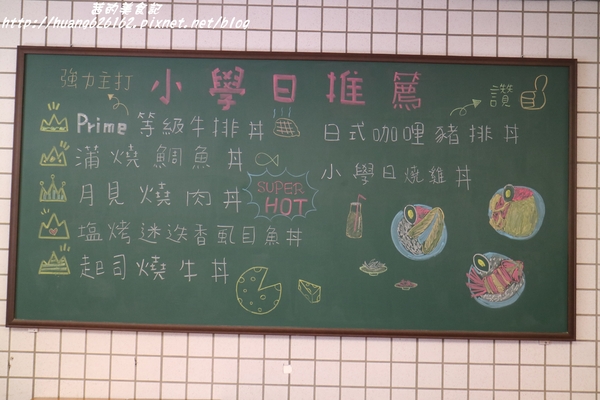 芸的美食記
http://huang626162.pixnet.net/blog
強力主打
小學日推薦
讚
Prime等級牛排丼
蒲燒鯛魚丼
月見燒肉丼
塩烤迷迭香虱目魚丼
起司燒牛丼
SUPER
HOT
日式咖哩豬排丼
小學日燒雞丼